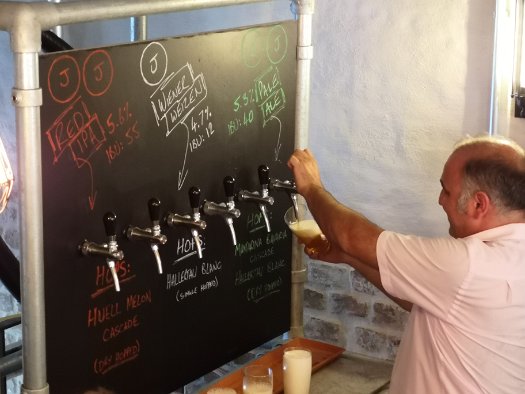 J J
RED
IPA
5.6%
IBU: 55
HOPS:
HUELL MELON
CASCADE
(DRY HOPPED)
J
WIENER
WEIZEN
4.7%
IBU: 12
HOPS:
HALLERTAU BLANC
(SINGLE HOPPED)
J
5.3%
IBU: 40
PALE
ALE
HOPS:
MANDARINA BAVARIA
CASCADE
HALLERTAU BLANC
(DRY HOPPED)